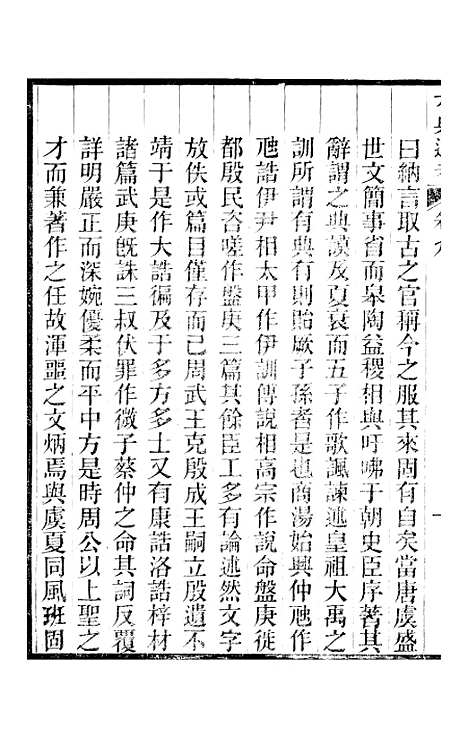 曰納言取古之官稱今之服其來固有自矣當唐虞盛
世文簡事省而皋陶益稷相與吁咈于朝史臣序著其
辭謂之典謨及夏衰而五子作歌諷諫述皇祖大禹之
訓所謂有典有則貽厥子孫者是也商湯始興仲虺作
虺誥伊尹相太甲作伊訓傳說相高宗作說命盤庚徙
都殷民咨嗟作盤庚三篇其餘臣工多有論述然文字
放佚或篇目僅存而已周武王克殷成王嗣立殷遺不
靖于是作大誥徧及于多方多士又有康誥洛誥梓材
諸篇武庚旣誅三叔伏罪作微子蔡仲之命其詞反覆
詳明嚴正而深婉優柔而平中方是時周公以上聖之
才而兼著作之任故渾噩之文炳焉與虞夏同風班固